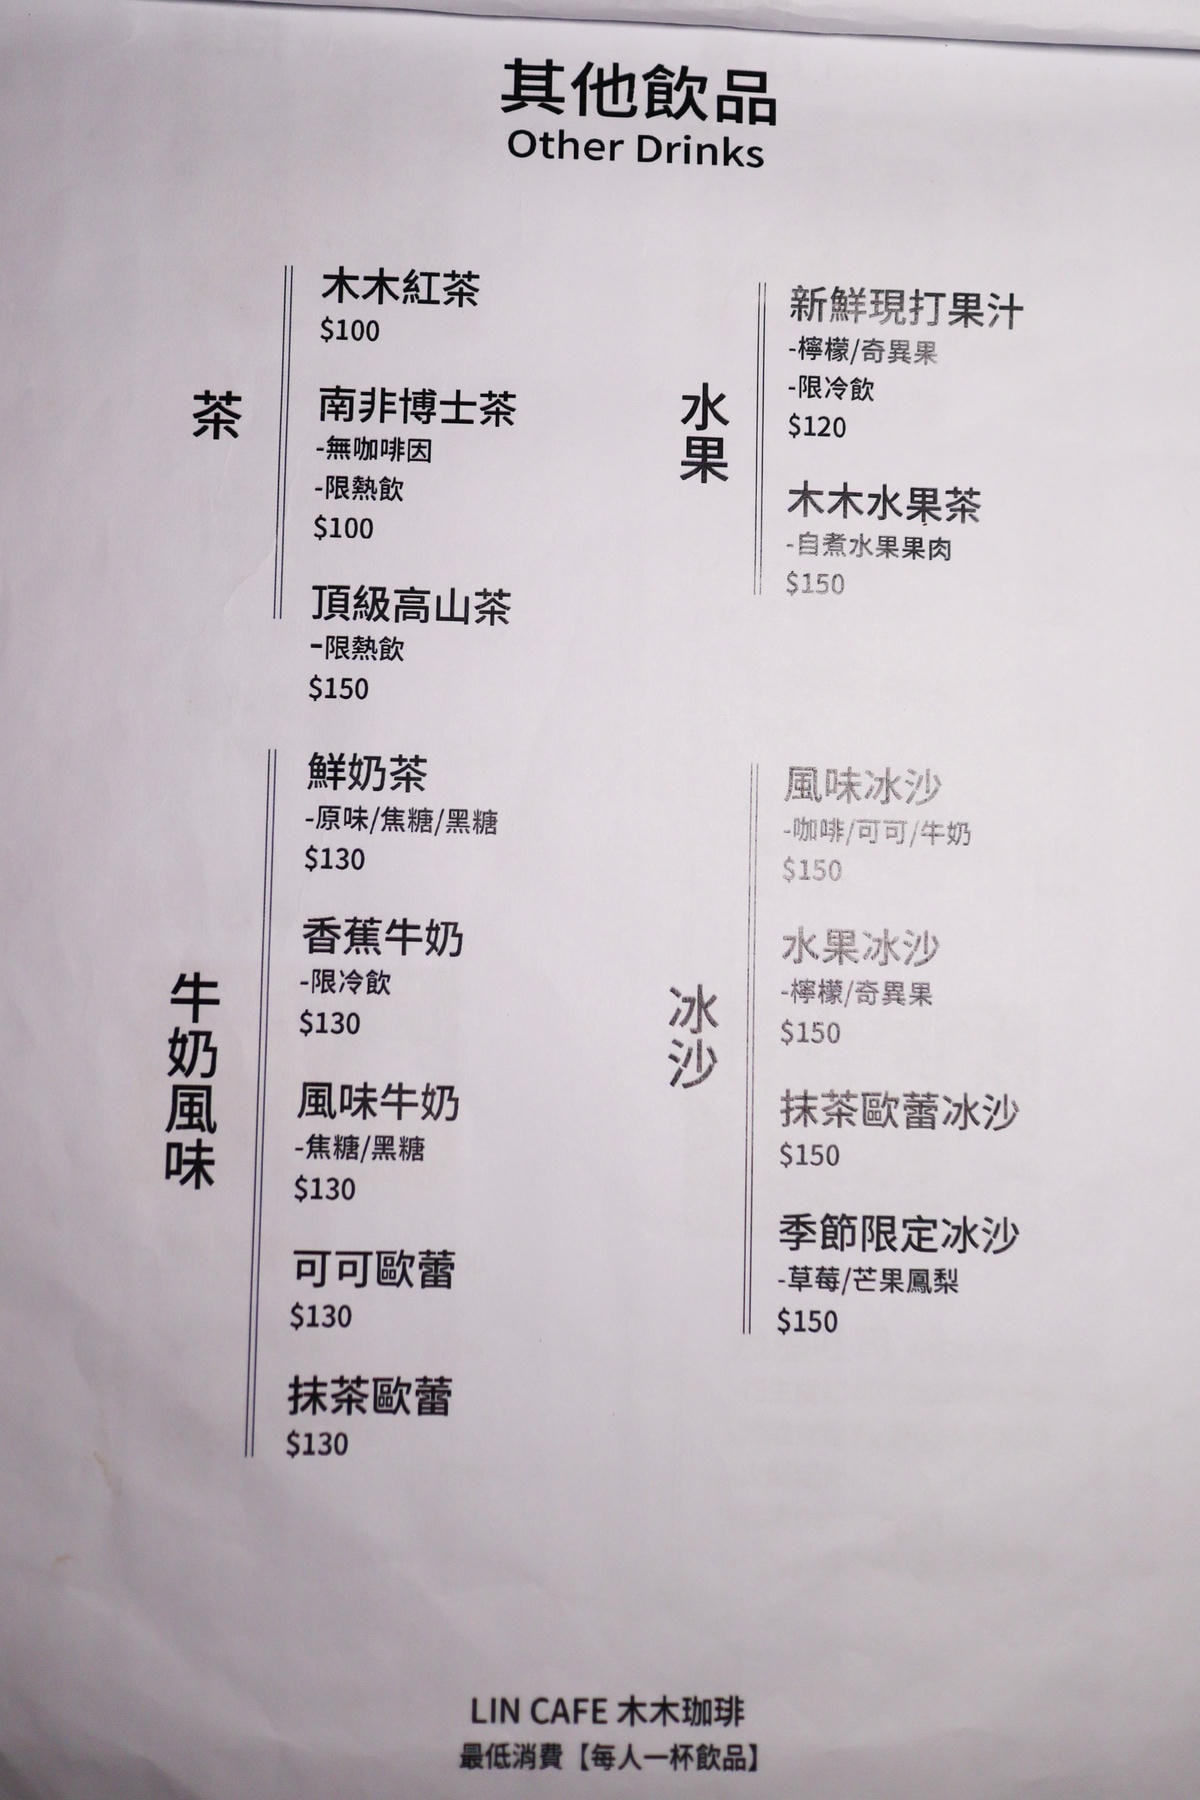 其他飲品
Other Drinks
茶
木木紅茶
$100
南非博士茶
-無咖啡因
-限熱飲
$100
頂級高山茶
-限熱飲
$150
牛奶風味
鮮奶茶
-原味/焦糖/黑糖
$130
香蕉牛奶
-限冷飲
$130
風味牛奶
-焦糖/黑糖
$130
可可歐蕾
$130
抹茶歐蕾
$130
水果
新鮮現打果汁
-檸檬/奇異果
-限冷飲
$120
木木水果茶
-自煮水果果肉
$150
冰沙
風味冰沙
-咖啡/可可/牛奶
$150
水果冰沙
-檸檬/奇異果
$150
抹茶歐蕾冰沙
$150
季節限定冰沙
-草莓/芒果鳳梨
$150
LIN CAFE 木木珈琲
最低消費【每人一杯飲品】